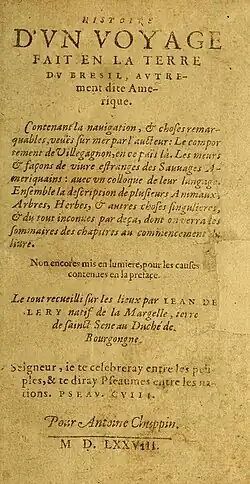 HISTOIRE
D'VN VOYAGE
FAIT EN LA TERRE
DV BRESIL, AVTRE-
ment dite Ame-
rique.
Contenant la nauigation, & choses remar-
quables, veuës sur mer par l'aucteur: Le compor-
tement de Villegagnon, en ce païs là. Les meurs
& façons de viure estranges des Sauuages A-
meriquains: auec vn colloque de leur langage.
Ensemble la description de plusieurs Animaux,
Arbres, Herbes, & autres choses singulieres,
& du tout inconues par deça, dont on verra les
sommaires des chapitres au commencement du
liure.
Non encores mis en lumiere, pour les causes
contenues en la preface.
Le tout recueilli sur les lieux par IEAN DE
LERY natif de la Margelle, terre
de sainct Sene au Duché de
Bourgongne.
Seigneur, ie te celebreray entre les peu-
ples, & te diray Pseaumes entre les na-
tions. PSEAV. CVIII.
Pour Antoine Chuppin.
M D. LXXVIII.